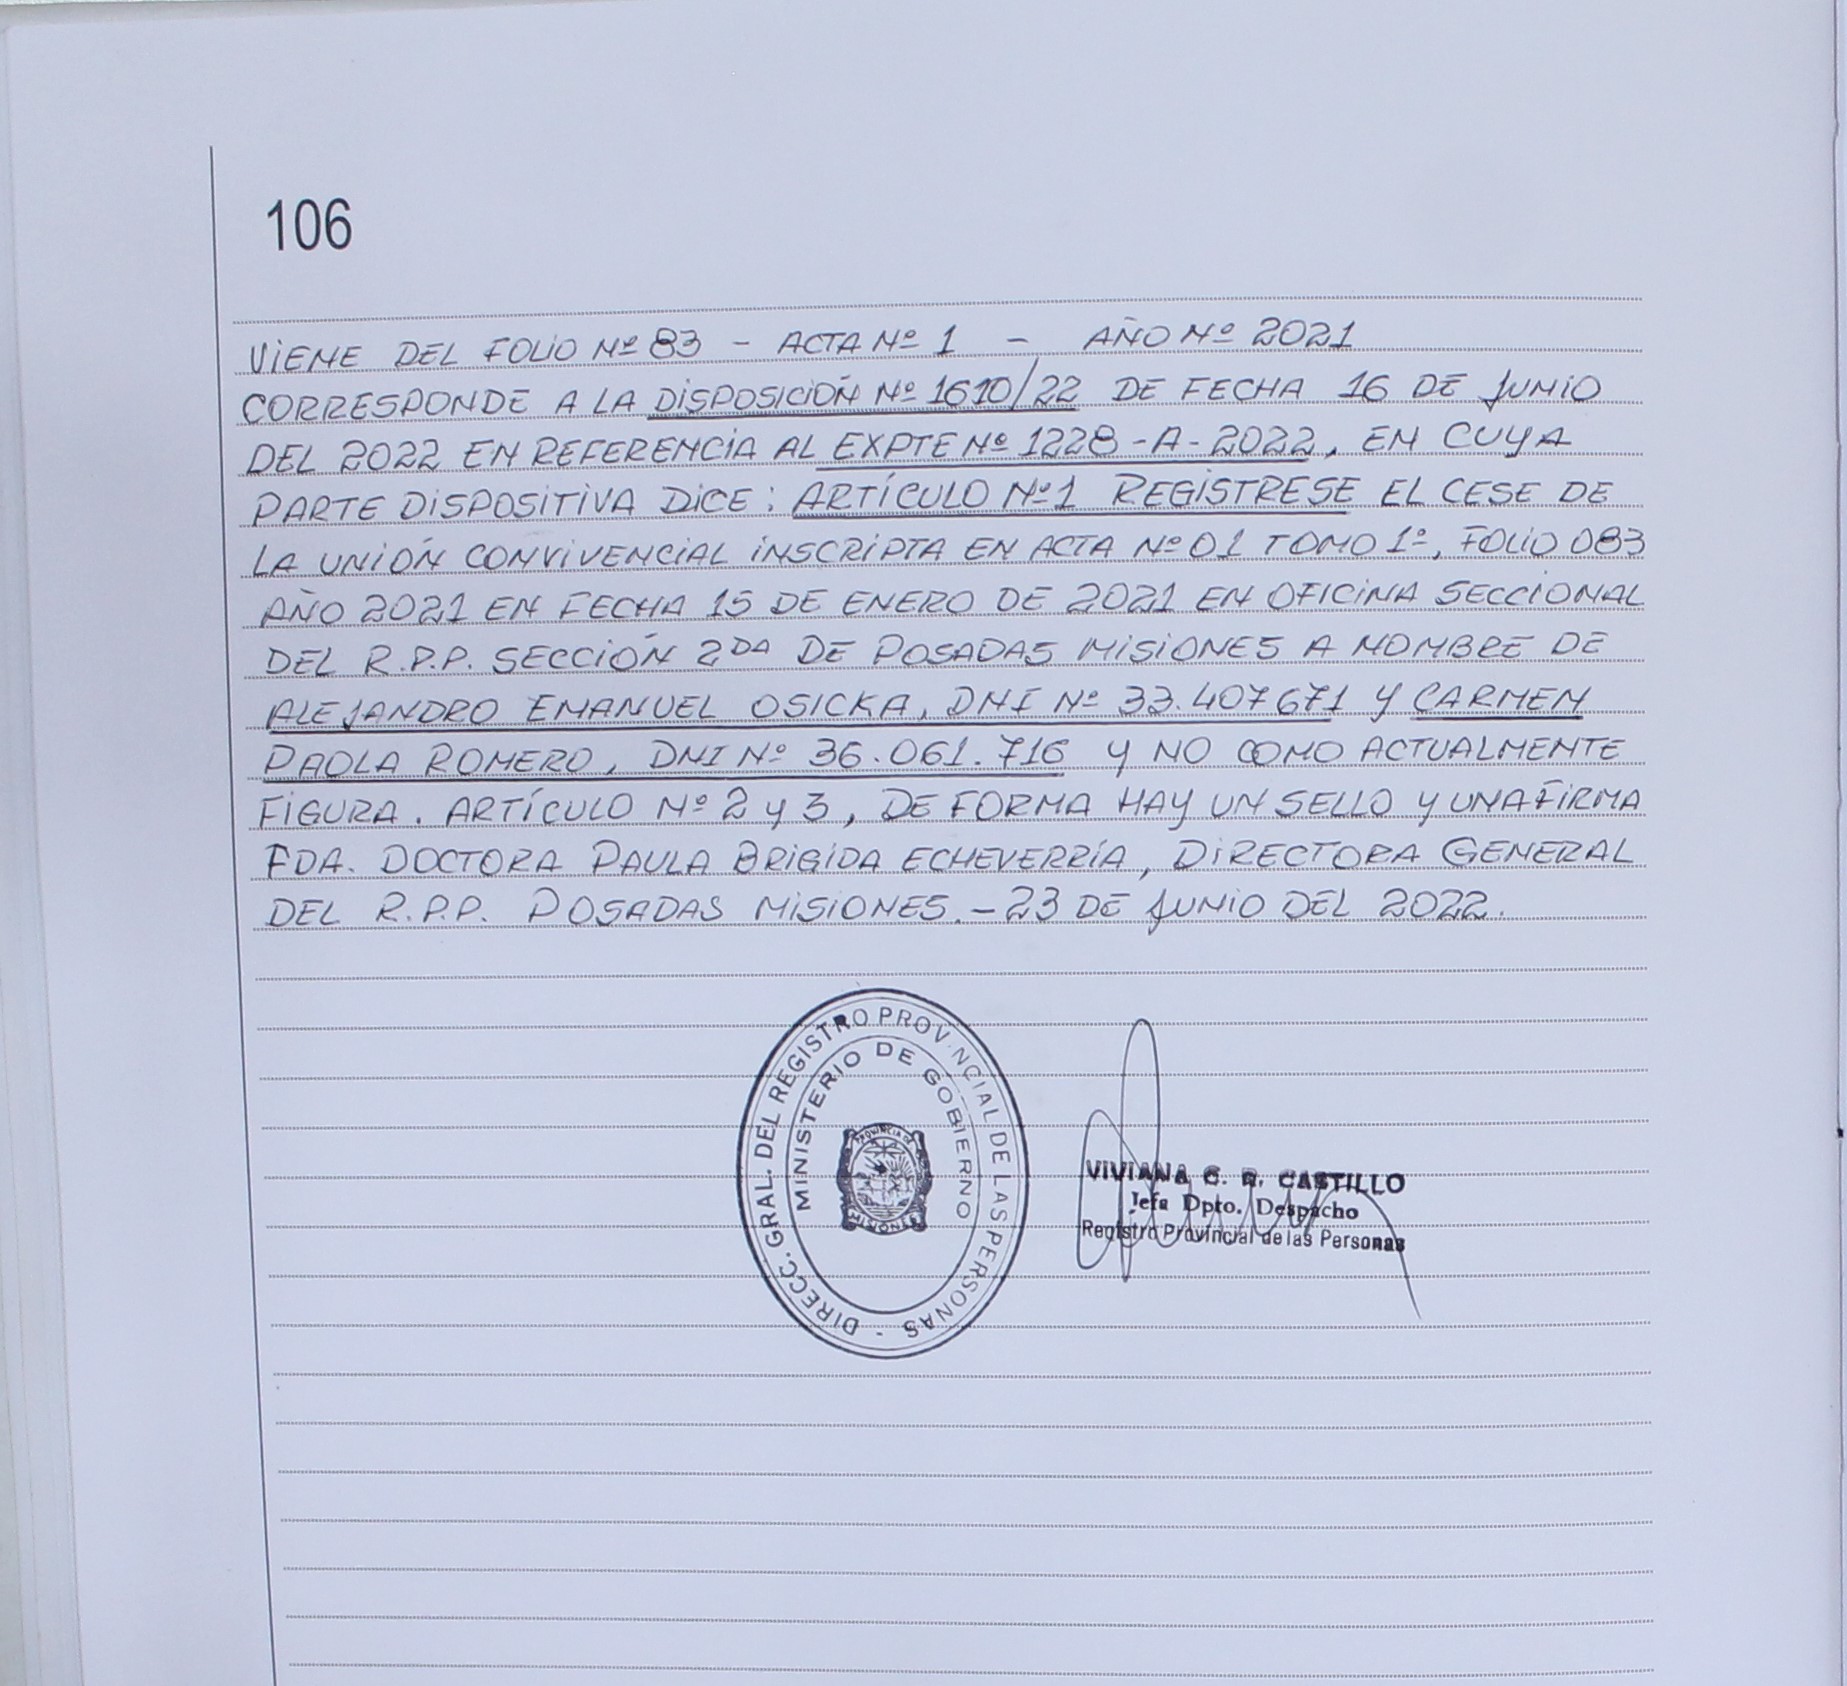 106
VIENE DEL FOLIO Nº 83 - ACTA Nº 1 - AÑO Nº 2021
CORRESPONDE A LA DISPOSICIÓN Nº 1610/22 DE FECHA 16 DE JUNIO
DEL 2022 EN REFERENCIA AL EXPTE Nº 1228-A-2022, EN CUYA
PARTE DISPOSITIVA DICE: ARTÍCULO Nº1 REGISTRESE EL CESE DE
LA UNIÓN CONVIVENCIAL INSCRIPTA EN ACTA Nº 01 TOMO 1º, FOLIO 083
AÑO 2021 EN FECHA 15 DE ENERO DE 2021 EN OFICINA SECCIONAL
DEL R.P.P. SECCIÓN 2DA DE POSADAS MISIONES A NOMBRE DE
ALEJANDRO EMANUEL OSICKA, DNI Nº 33.407671 Y CARMEN
PAOLA ROMERO, DNI Nº 36.061.716 Y NO COMO ACTUALMENTE
FIGURA. ARTÍCULO Nº 2 Y 3, DE FORMA HAY UN SELLO Y UNA FIRMA
FDA. DOCTORA PAULA BRIGIDA ECHEVERRÍA, DIRECTORA GENERAL
DEL R.P.P. POSADAS MISIONES.-23 DE JUNIO DEL 2022.
DIRECC. GRAL. DEL REGISTRO PROVINCIAL DE LAS PERSONAS -
MINISTERIO DE GOBIERNO
PROVINCIA DE
MISIONES
VIVIANA C. R. CASTILLO
Jefa Dpto. Despacho
Registro Provincial de las Personas